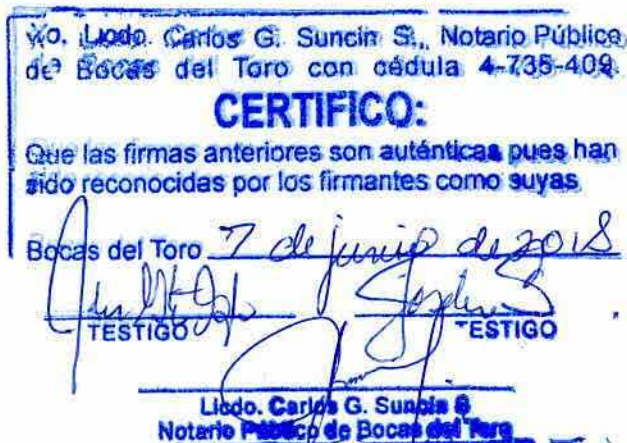 Yo, Licdo. Carlos G. Suncin S., Notario Público
de Bocas del Toro con cédula 4-735-409.
CERTIFICO:
Que las firmas anteriores son auténticas pues han
sido reconocidas por los firmantes como suyas
Bocas del Toro 7 de junio de 2018
TESTIGO TESTIGO
Licdo. Carlos G. Suncin S
Notario Público de Bocas del Toro